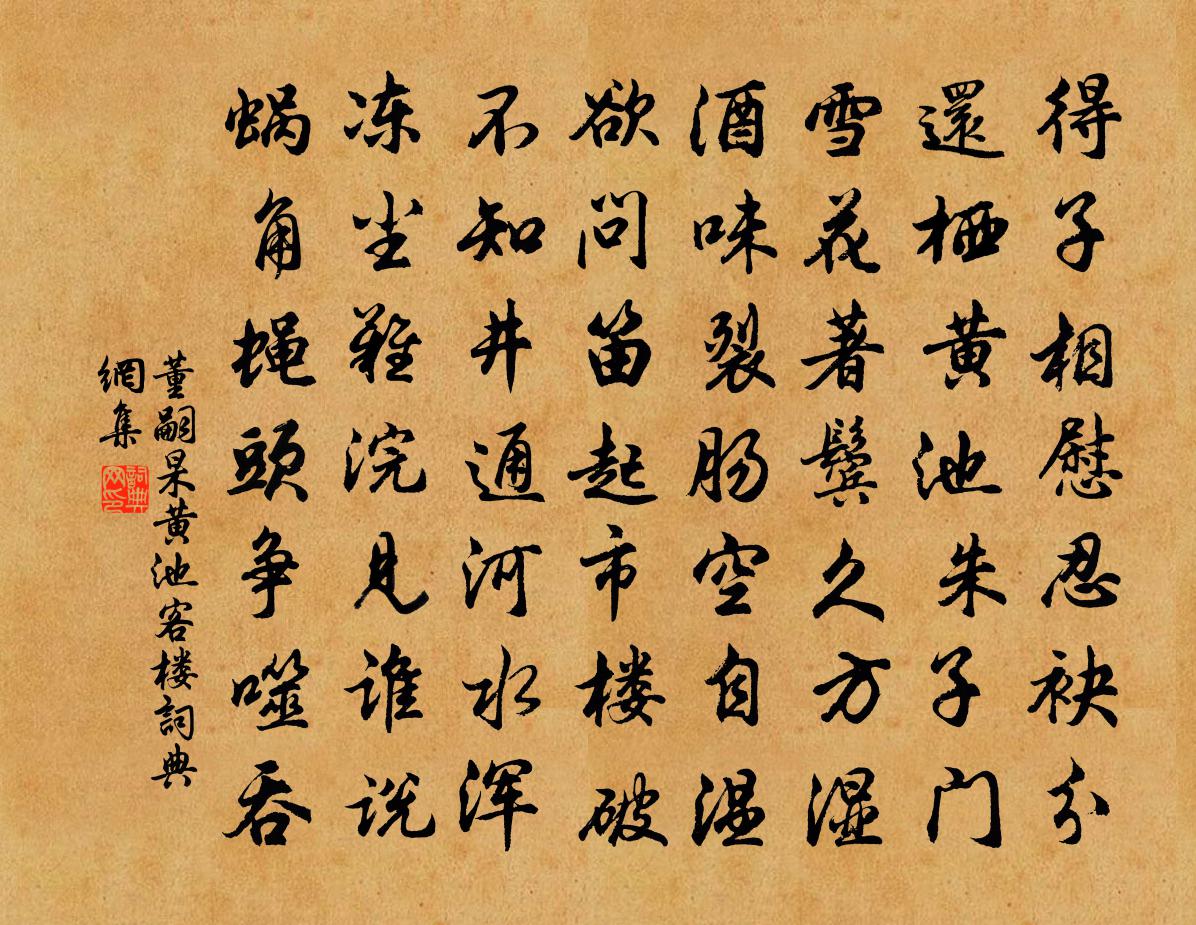 得子相慰忍袂分
還栖黄池朱子门
雪花著鬓久方湿
酒味裂肠空自温
欲问笛起市楼破
不知井通河水浑
冻尘難浣見谁说
蜗角蝇頭争噬吞
董嗣杲黄池客楼詞典
網集
詞典網印